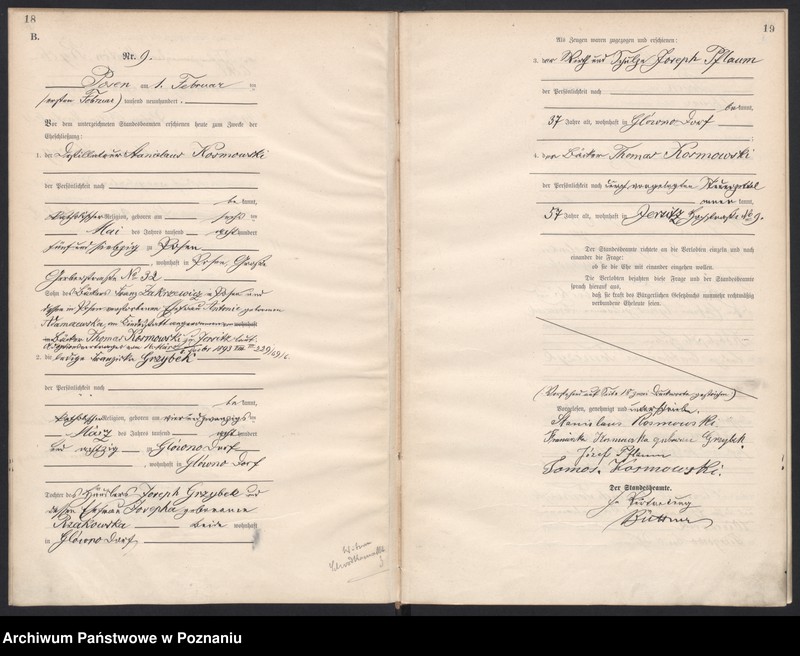 18
B.
Nr. 9.
Posen am 1. Februar
(ersten Februar) tausend neunhundert
Vor dem unterzeichneten Standesbeamten erschienen heute zum Zwecke der
Eheschließung:
1. der Destillateur Stanislaus Kosmowski
der Persönlichkeit nach
bekannt,
katholischer Religion, geboren am
Mai des Jahres tausend achthundert
fünf und siebzig zu Posen
, wohnhaft in Posen, Große
Gerberstraße No 32
Sohn des Bäckers Franz Zakrzewicz Posen und
dessen in Posen verstorbenen Ehefrau Antonie geborenen
Adamczewska, an Kindesstatt angenommen wohnhaft
Bäcker Thomas Kosmowski zu Jersitz laut
1893
2. die ledige Franziska Grzybek
der Persönlichkeit nach
bekannt,
katholischer Religion, geboren am vierundzwanzigsten
März des Jahres tausend achthundert
und achtzig zu Glówno Dorf
, wohnhaft in Glówno Dorf
Tochter des Häuslers Joseph Grzybek und
dessen Ehefrau Josepha geborenen
Rzakowska beide wohnhaft
in Glówno Dorf
19
Als Zeugen waren zugezogen und erschienen:
3. der Wirth und Schulze Joseph Pflaum
der Persönlichkeit nach
bekannt,
37 Jahre alt, wohnhaft in Glówno Dorf
;
4. der Bäcker Thomas Kosmowski
der Persönlichkeit nach durch vorgelegten Steuerzettel
anerkannt,
57 Jahre alt, wohnhaft in Jersitz No 9.
Der Standesbeamte richtete an die Verlobten einzeln und nach
einander die Frage:
ob sie die Ehe mit einander eingehen wollen.
Die Verlobten bejahten diese Frage und der Standesbeamte
sprach hierauf aus,
daß sie kraft des Bürgerlichen Gesetzbuchs nunmehr rechtmäßig
verbundene Eheleute seien.
(Vorstehend auf Seite 18 zwei Druckworte gestrichen)
Vorgelesen, genehmigt und unterschrieben.
Stanislaus Kosmowski.
Franziska Kosmowska geborene Grzybek.
Józef Pflaum
Tomos. Kosmowski.
Der Standesbeamte.
In Vertretung
Büttner
Archiwum Państwowe w Poznaniu